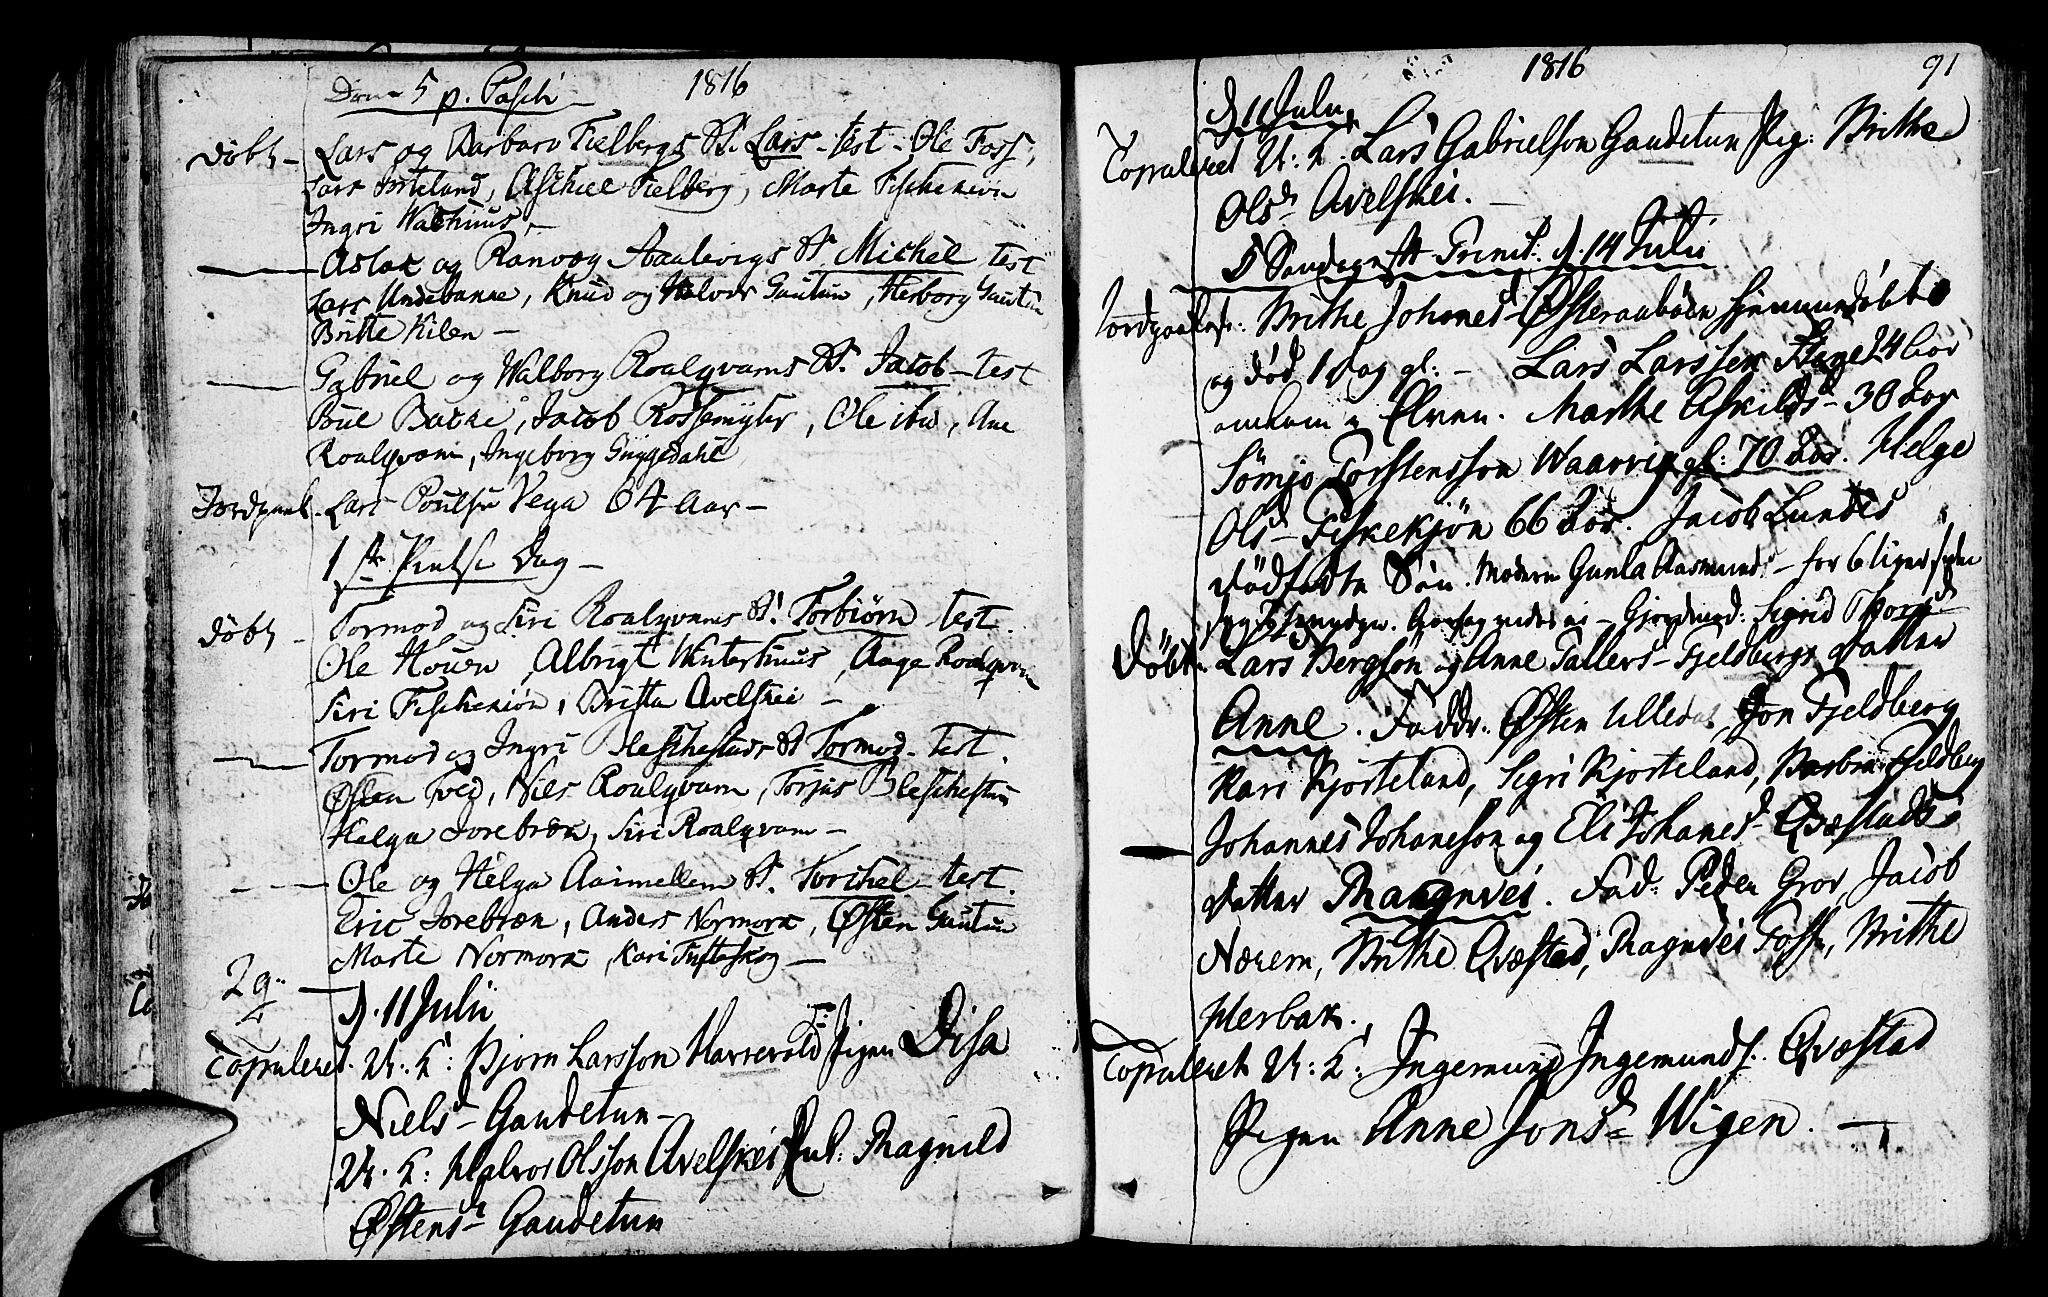 1816
Dom 5 p. Pasch
Døbt - Lars og Barbara Fielbergs B. Lars - test - Ole Foss,
Lars Aschiel Fielberg, Marte Fischeniön
Ingri Wathnus -
Aslak og Ranvæg Aaalevigs B. Michel test
Lars Undebanne, Knud og Halvor Gautun, Herborg Gautun
Britte Kilen -
Gabriel og Walborg Roalqvams B. Jacob - test
Poul Bakke, Jacob Rossemyhr, Ole ibid, Ane
Roalqvam, Ingeborg Guggedahl
Jordpaak. Lars Poulsen Vega 64 Aar -
1ste Pintse Dag -
Døbt - Tormod og Siri Roalqvams B. Torbiörn test.
Ole Houen, Albrigt Winterhuus, Aage Roalqvam
Siri Fischeniön, Britta Avelskei -
Tormod og Ingri Bleschestads B. Tormod - test.
Østen Tved, Niels Roalqvam, Torjus Bleschestad
Helga Jorebræn, Siri Roalqvam -
Ole og Helga Aarmellem B. Torchel - test.
Eric Jorebræn, Anders Normork, Østen Gautun
Marte Normork, Kari Tuftaskog -
2g
d. 11 Julii
Copuleret. U: K: Bjorn Larsson Harrevold Pigen Disa
Nielsd Gaudetun -
U. K: Halvor Olsson Avelskei Pig: Ragnild
Østensd Gaudetun
1816
91
d 11 Julii
Copuleret U: K. Lars Gabrielson Gaudetun Pig: Brithe
Olsd Avelskei. -
5 Söndag eft Trinit: d. 14 Julii
Jordpaakast: Brithe Johanesd Østeraaböen hjemmedöbt
og död 1 Dag gl: - Lars Larssen 24 Aar
omkom i Elven. Marthe Askildsd - 30 Aar
Sömjo Torstensson Waarvig gl: 70 Aar. Helge
Olsd - Fiskekjön 66 Aar. Jacob Lundes
dödfödte Sön. Moderen Gunla Aasmundsd - for 6 Uger siden
Gjordmod: Sigrid Thorsd
Döbte Lars Bergsön og Anne Tallers - Fjeldbergs datter
Anne. Faddr. Østen Ulledal, Jon Fjeldberg
Kari Kjorteland, Sigri Kjorteland, Barbra Fjeldberg
Johannes Johaneson og Eli Johanesd Qvæstads
datter Ragnvei. Fad: Peder Grov, Jacob
Nærem, Brithe Qvæstad, Ragnvei Foss, Brithe
Herbak.
Copuleret U: K: Ingemund Ingemunds. Qvæstad
Pigen Anne Jonsd Wigen. -